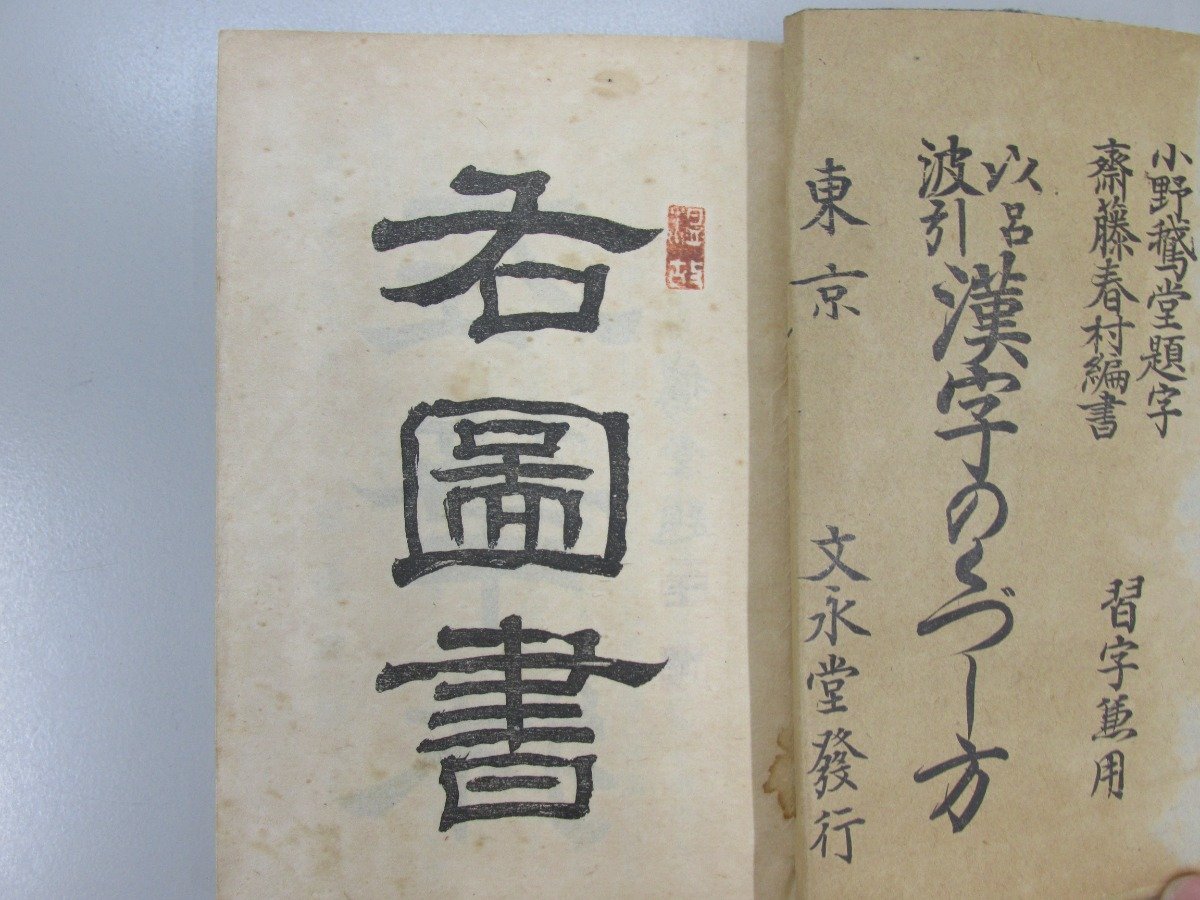 小野鵞堂題字
齋藤春村編書
習字兼用
以呂
波引
漢字のくづし方
東京 文永堂發行
温故
右圖書